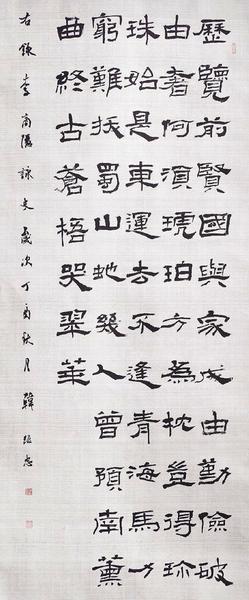 歷覽前賢國與家成由勤儉破
由奢何須琥珀方為枕豈得珍
珠始是車運去不逢青海馬力
窮難拔蜀山虵幾人曾預南薰
曲終古蒼梧哭翠華
右錄李商隱詠史歲次丁酉秋月韓